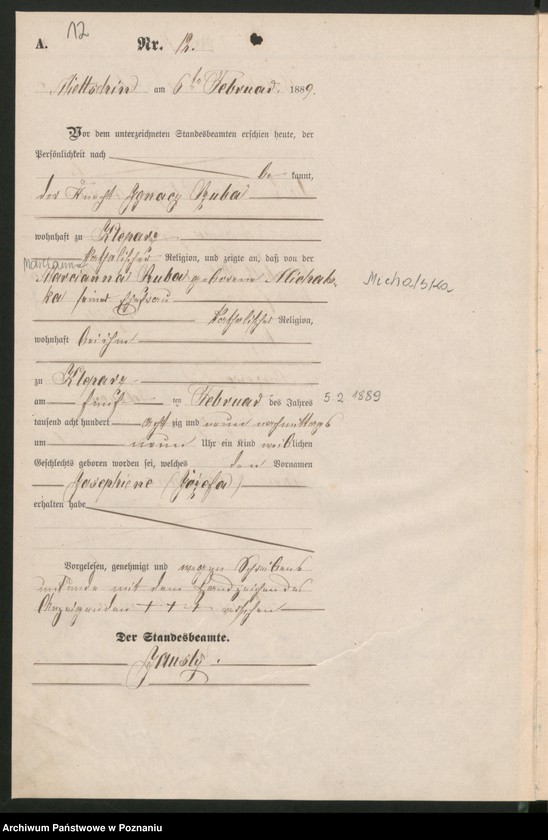 A. 12 Nr. 12.
Miettschin am 6ten Februar 1889.
Vor dem unterzeichneten Standesbeamten erschien heute, der
Persönlichkeit nach
be kannt,
der Knecht Ignacz Szuba
wohnhaft zu
katholischer Religion, und zeigte an, daß von der
Marcianna
Marcianna Szuba geborenen Michals
ka seiner Ehefrau
Michalska
katholischer Religion,
wohnhaft bei ihm
zu
am fünf ten Februar des Jahres 5.2 1889
tausend acht hundert acht zig und neun nachmittags
um neun Uhr ein Kind weiblichen
Geschlechts geboren worden sei, welches den Vornamen
Josephiene (Józefa)
erhalten habe
Vorgelesen, genehmigt und wegen Schreibens
unkunde mit dem Handzeichen des
Anzeigenden + + + versehen
Der Standesbeamte.
Archiwum Państwowe w Poznaniu